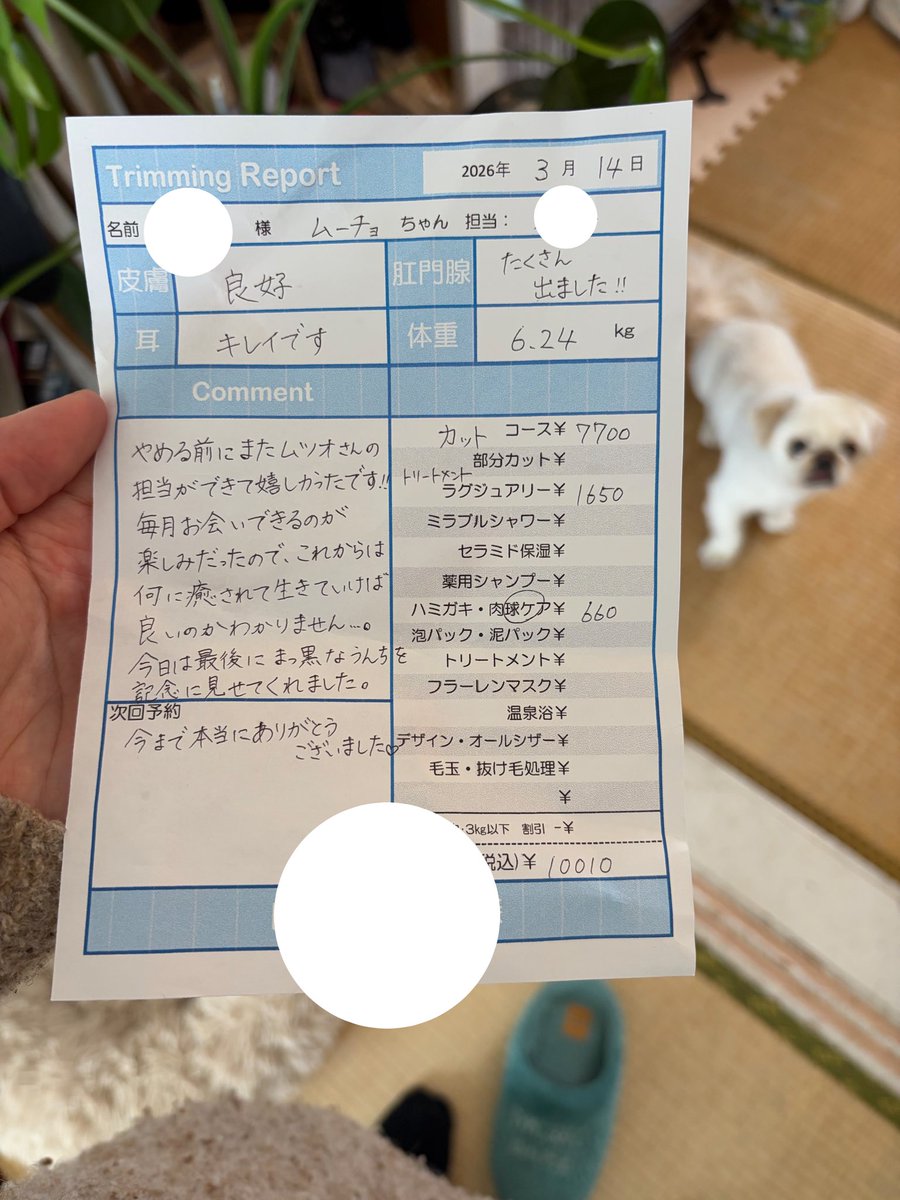 Trimming Report 2026年 3月 14日
名前 様 ムーチョ ちゃん 担当：
皮膚 良好 肛門腺 たくさん出ました!!
耳 キレイです 体重 6.24 kg
Comment
やめる前にまたムツオさんの
担当ができて嬉しかったです!!
毎月お会いできるのが
楽しみだったので、これからは
何に癒されて生きていけば
良いのかわかりません…。
今日は最後にまっ黒なうんちを
記念に見せてくれました。
次回予約
今まで本当にありがとう
ございました♡
カット コース¥ 7700
部分カット¥
トリートメント
ラグジュアリー¥ 1650
ミラブルシャワー¥
セラミド保湿¥
薬用シャンプー¥
ハミガキ・肉球ケア¥ 660
泡パック・泥パック¥
トリートメント¥
フラーレンマスク¥
温泉浴¥
デザイン・オールシザー¥
毛玉・抜け毛処理¥
¥
3kg以下 割引 -¥
税込)¥ 10010